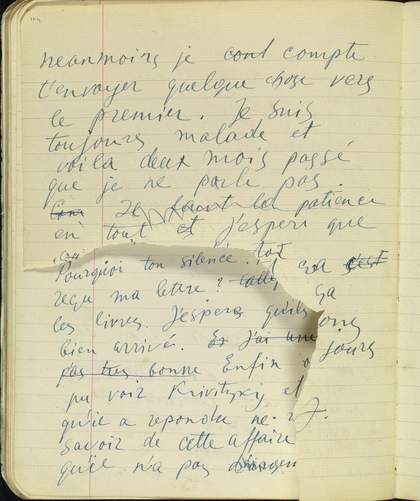 neanmoins je cont compte
t'envoyer quelque chose vers
le premier. Je suis
toujours malade et
voila deux mois passé
que je ne parle pas
Il faut la patience
en tout et j'espere que
Pourquoi ton silence. tot
reçu ma lettre?
les livres. J'espere qu'ils
bien arrivé. Et j'ai une
pas tres bonne Enfin
pu voir Krivitzky et
qu'il a repondu ne
savoir de cette affaire
qu'il n'a pas